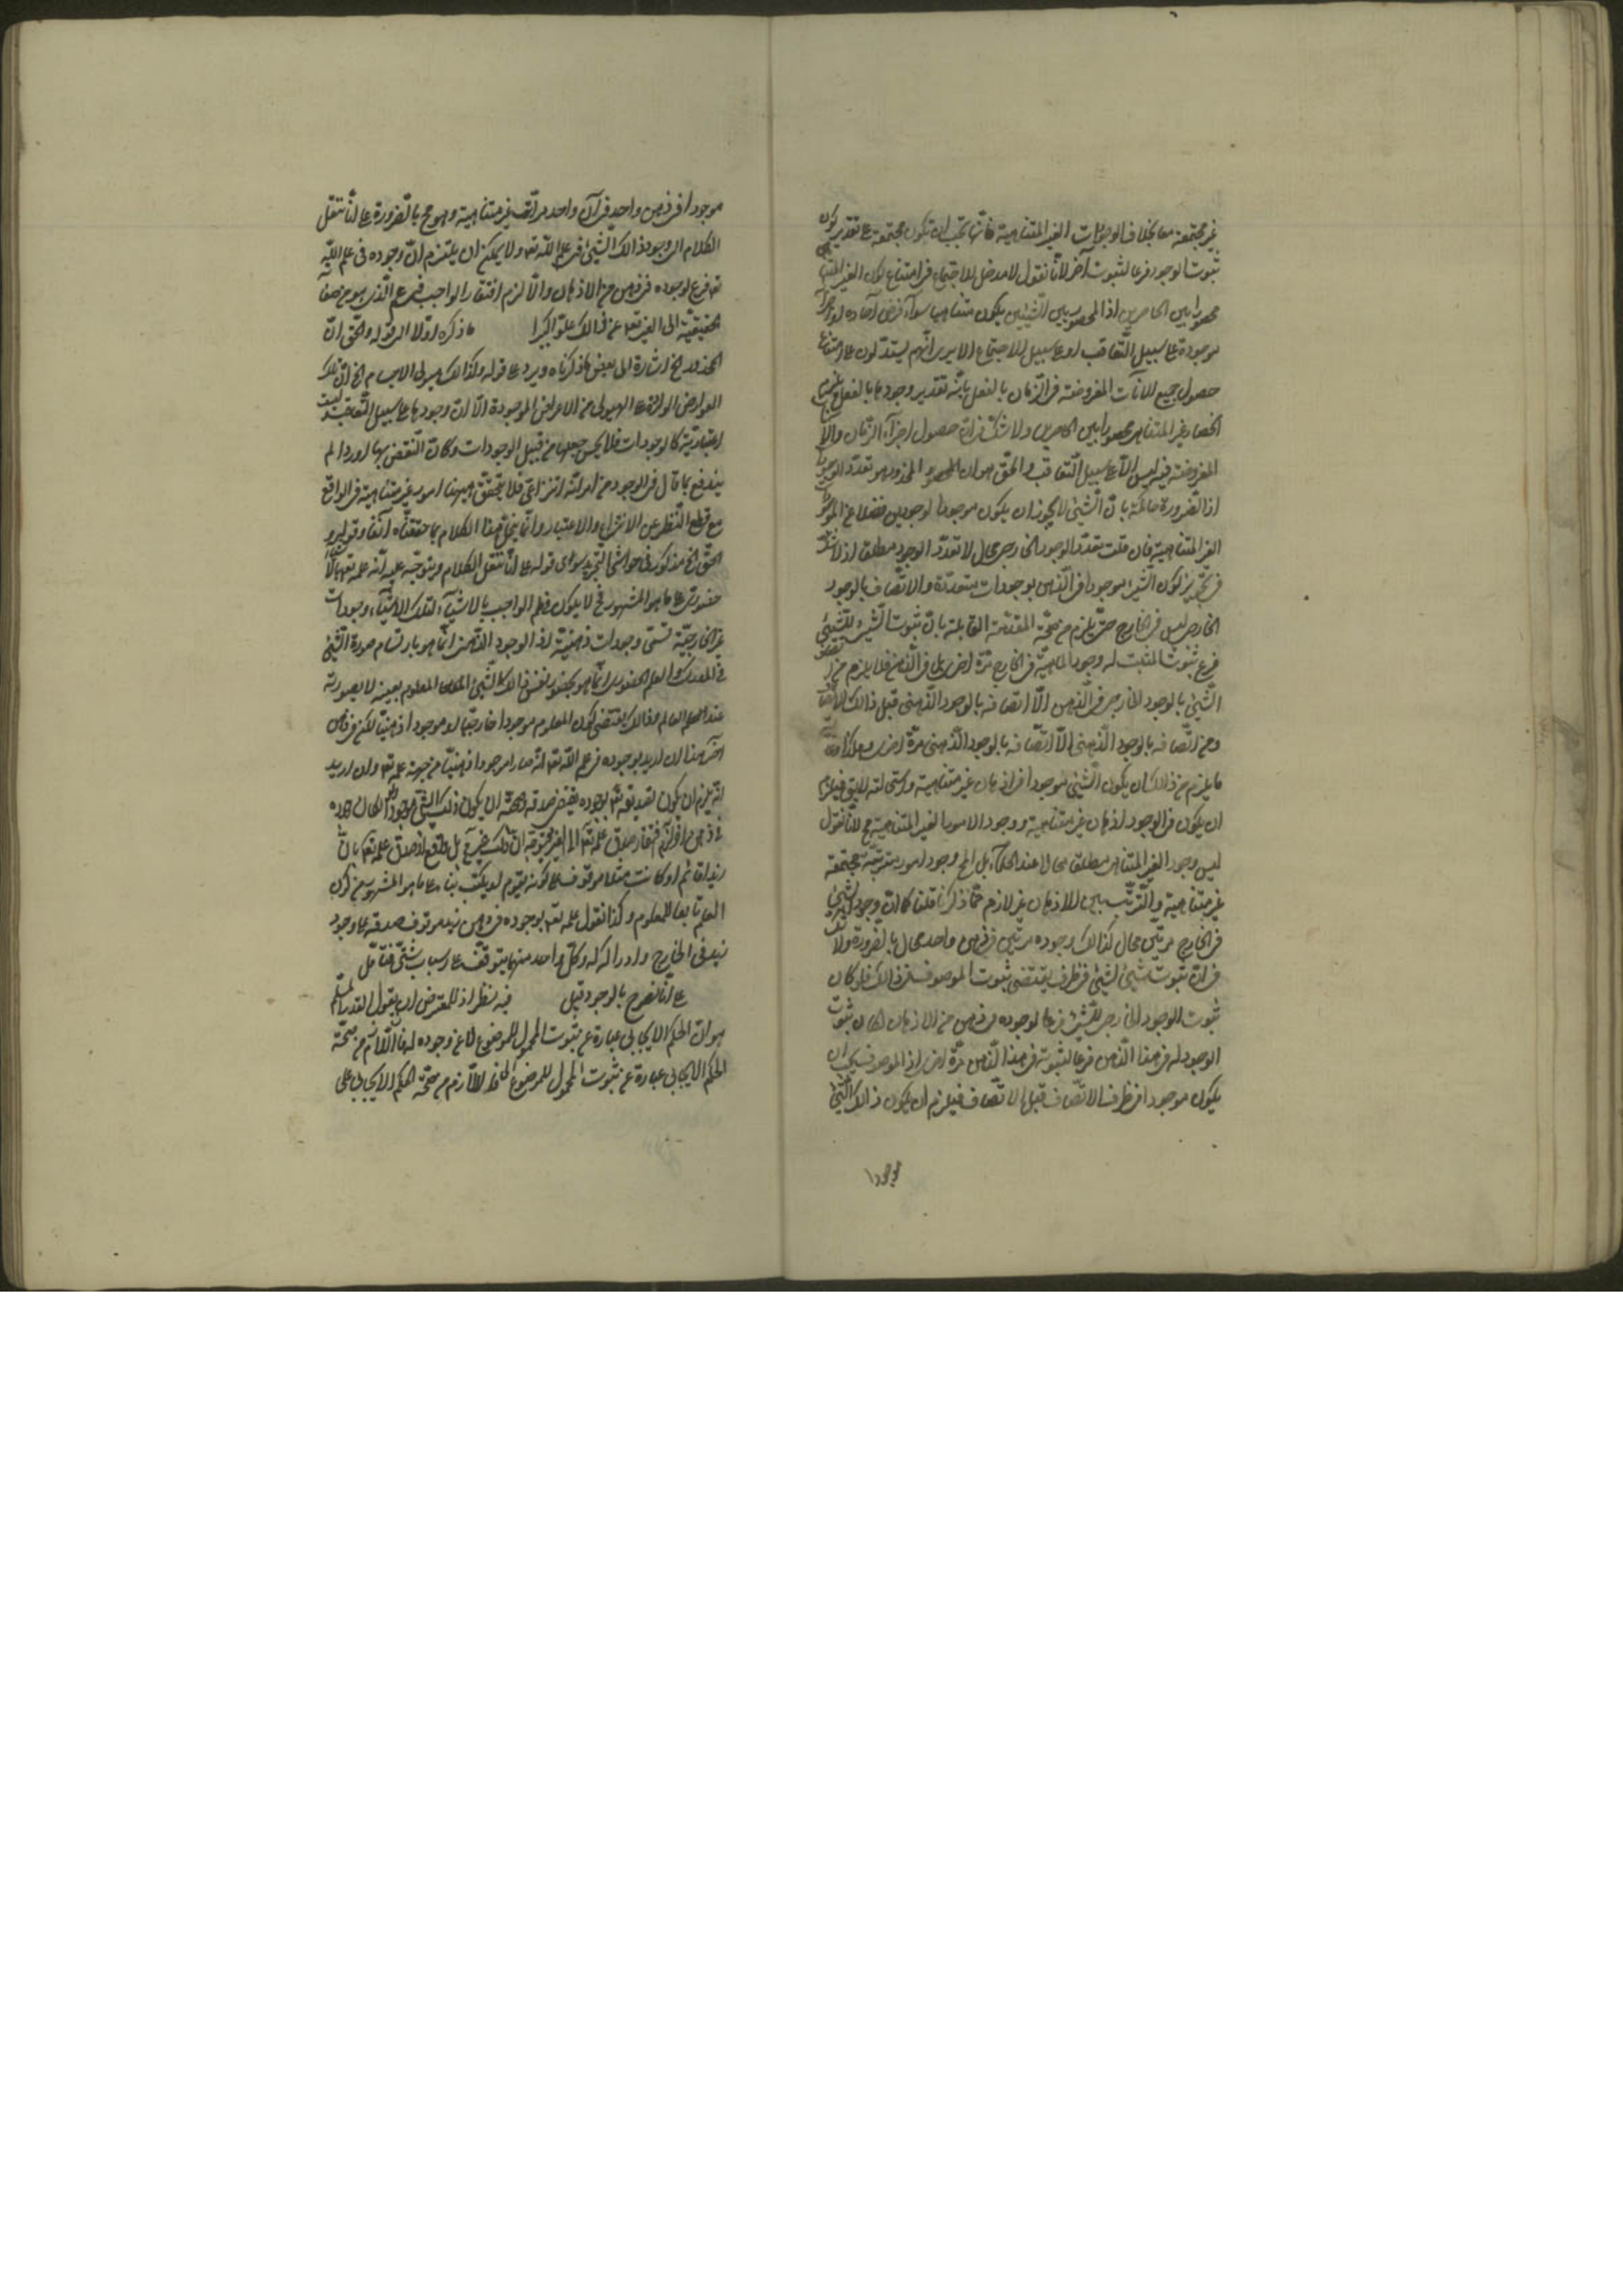 غير مجتمعة معا بخلاف الوجودات الغير المتناهية فانها يجب ان يكون مجتمعة على تقدير كون
ثبوت الوجود فرعا لثبوت آخر لأنا نقول لا مدخل للاجتماع في امتناع كون الغير المتناهي
محصورا بين الحاصرين اذ المحصور بين الشيئين يكون متناهيا سواء فرض آحاده او اجزاؤه
موجودة على سبيل التعاقب او على سبيل الاجتماع الا يرى انهم يستدلون على امتناع
حصول جميع الآنات المفروضة في الزمان بالفعل بانه تقدير وجودها بالفعل يلزم
انحصار غير المتناهي محصورا بين الحاصرين ولا شك في ان حصول اجزاء الزمان والآنات
المفروضة فيه ليس الا على سبيل التعاقب والحق هو ان المحذور هو تعدد الوجود
اذ الضرورة حاكمة بان الشيئ لا يجوز ان يكون موجودا بوجودين فضلا عن الموجودات
الغير المتناهية فان قلت تعدد الوجود الخارجي محال لا تعدد الوجود مطلقا اذ لا شك
في تجويز كون الشيئ موجودا في الذهن بوجودات متعددة والاتصاف بالوجود
الخارجي ليس في الخارج حتى يلزم من صحة المقدمة القائلة بان ثبوت الشيئ للشيئ
فرع ثبوت المثبت له وجود الماهية في الخارج مرة اخرى بل في الذهن فلا يلزم من اتصاف
الشيئ بالوجود الخارجي في الذهن الا اتصافه بالوجود الذهني قبل ذالك الاتصاف
ومن اتصافه بالوجود الذهني الا اتصافه بالوجود الذهني مرة اخرى وهكذا
ما يلزم من ذالك ان يكون الشيئ موجودا في اذهان غير متناهية واستحالته
ان يكون في الوجود اذهان غير متناهية ووجود الامور الغير المتناهية مح لأنا نقول
ليس وجود الغير المتناهي مطلقا محالا عند الحكماء بل المح وجود امور مترتبة مجتمعة
غير متناهية والترتب بين الاذهان غير لازم مما ذكرنا قلنا كما ان وجود الشيئ
في الخارج مرتين محال كذالك وجوده مرتين في ذهن واحد محال بالضرورة ولا شك
في ان ثبوت شيئ لشيئ في ظرف يقتضي ثبوت الموصوف في ذالك فلو كان
ثبوت الوجود الخارجي للشيئ فرعا لوجوده في ذهن من الاذهان لكان ثبوت
الوجود له في هذا الذهن فرعا لثبوته في هذا الذهن مرة اخرى اذ الموصوف يجب ان
يكون موجودا في ظرف الاتصاف قبل الاتصاف فيلزم ان يكون ذالك الشيئ
موجودا
موجودا في ذهن واحد في آن واحد مراتب غير متناهية وهو مح بالضرورة على انا ننقل
الكلام الى وجود ذالك الشيئ في علم الله تع ولا يمكن ان يلتزم ان وجوده في علم الله
تع فرع لوجوده في ذهن من الاذهان والا لزم افتقار الواجب في علم الذي هو من صفاته
الحقيقية الى الغير تع عن ذالك علوا كبيرا ما ذكره اولا الى قوله والحق ان
المحذور الخ اشارة الى بعض ما ذكرناه ويرد على قوله وكذالك هيولى الاجسام الخ ان تلك
العوارض الواردة على الهيولى من الاعراض الموجودة الا ان وجودها على سبيل التعاقب وليست
اعتبارية كالوجودات فلا يحسن جعلها من قبيل الوجودات وكان النقض بها واردا لم
يندفع بما قال في الوجود من انه انتزاعي فلا يتحقق ههنا امور غير متناهية في الواقع
مع قطع النظر عن الانتزاع والاعتبار وانما ينحل هذا الكلام بما حققناه آنفا وقوله و
الحق الخ مذكور في حواشي التجريد سوى قوله على انا ننقل الكلام ويتوجه عليه انه علمه تع بالاشياء
حضوري على ما هو المشهور فح لا يكون في علم الواجب بالاشياء لتلك الاشياء وجودات
غير الخارجية تسمى وجودات ذهنية اذ الوجود الذهني انما هو بارتسام صورة الشيئ
في المدرك والعلم الحضوري انما هو بحضور نفس ذالك الشيئ المعلوم بعينه لا بصورته
عند العالم وذالك يقتضي كون المعلوم موجودا خارجيا او موجودا ذهنيا لكن في ذهن
آخر هذا ان اريد بوجوده في علم الله تع انه صار موجودا ذهنيا من جهة علمه تع وان اريد
انه يلزم ان يكون تصديقه تع بوجوده يقتضي صدقه ان يكون ذلك الشيئ موجودا
زيدا قائم او كاتب مثلا موقوف على كونه يقوم او يكتب بناء على ما هو المشهور من كون
العلم تابعا للمعلوم وكذا نقول علمه تع بوجوده في ذهن زيد موقوف صدقه على وجود
زيد في الخارج وادراكه له وكل واحد منهما يتوقف على اسباب شتى فتأمل
على انا نصرح بالوجود قبل فيه نظر اذ للمعترض ان يقول القدر المسلم
هو ان الحكم الايجابي عبارة عن ثبوت المحمول للموضوع لا عن وجوده له فاللازم من صحة
الحكم الايجابي عبارة عن ثبوت المحمول للموضوع فاللازم من صحة الحكم الايجابي على